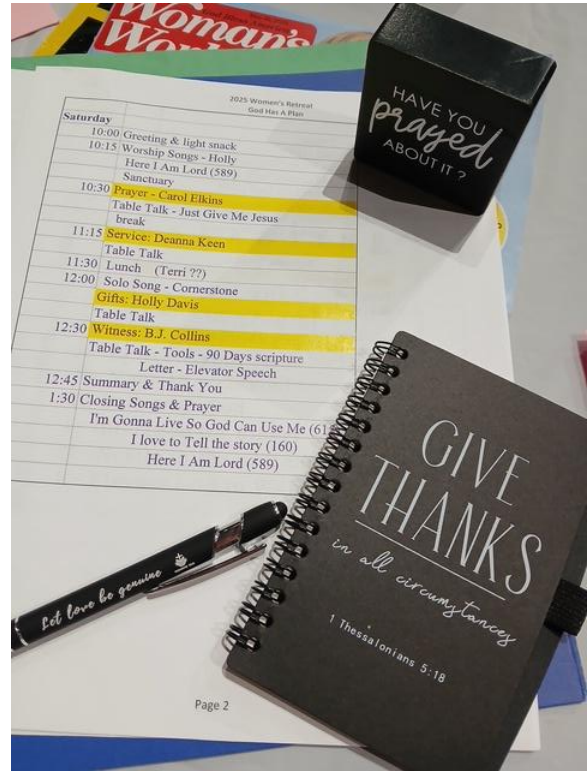 Woman's
HAVE YOU
prayed
ABOUT IT ?
2025 Women's Retreat
God Has A Plan
Saturday
10:00 Greeting & light snack
10:15 Worship Songs - Holly
Here I Am Lord (589)
Sanctuary
10:30 Prayer - Carol Elkins
Table Talk - Just Give Me Jesus
break
11:15 Service: Deanna Keen
Table Talk
11:30 Lunch (Terri ??)
12:00 Solo Song - Cornerstone
Gifts: Holly Davis
Table Talk
12:30 Witness: B.J. Collins
Table Talk - Tools - 90 Days scripture
Letter - Elevator Speech
12:45 Summary & Thank You
1:30 Closing Songs & Prayer
I'm Gonna Live So God Can Use Me
I love to Tell the story (160)
Here I Am Lord (589)
GIVE
THANKS
in all circumstances
1 Thessalonians 5:18
Let love be genuine
Page 2